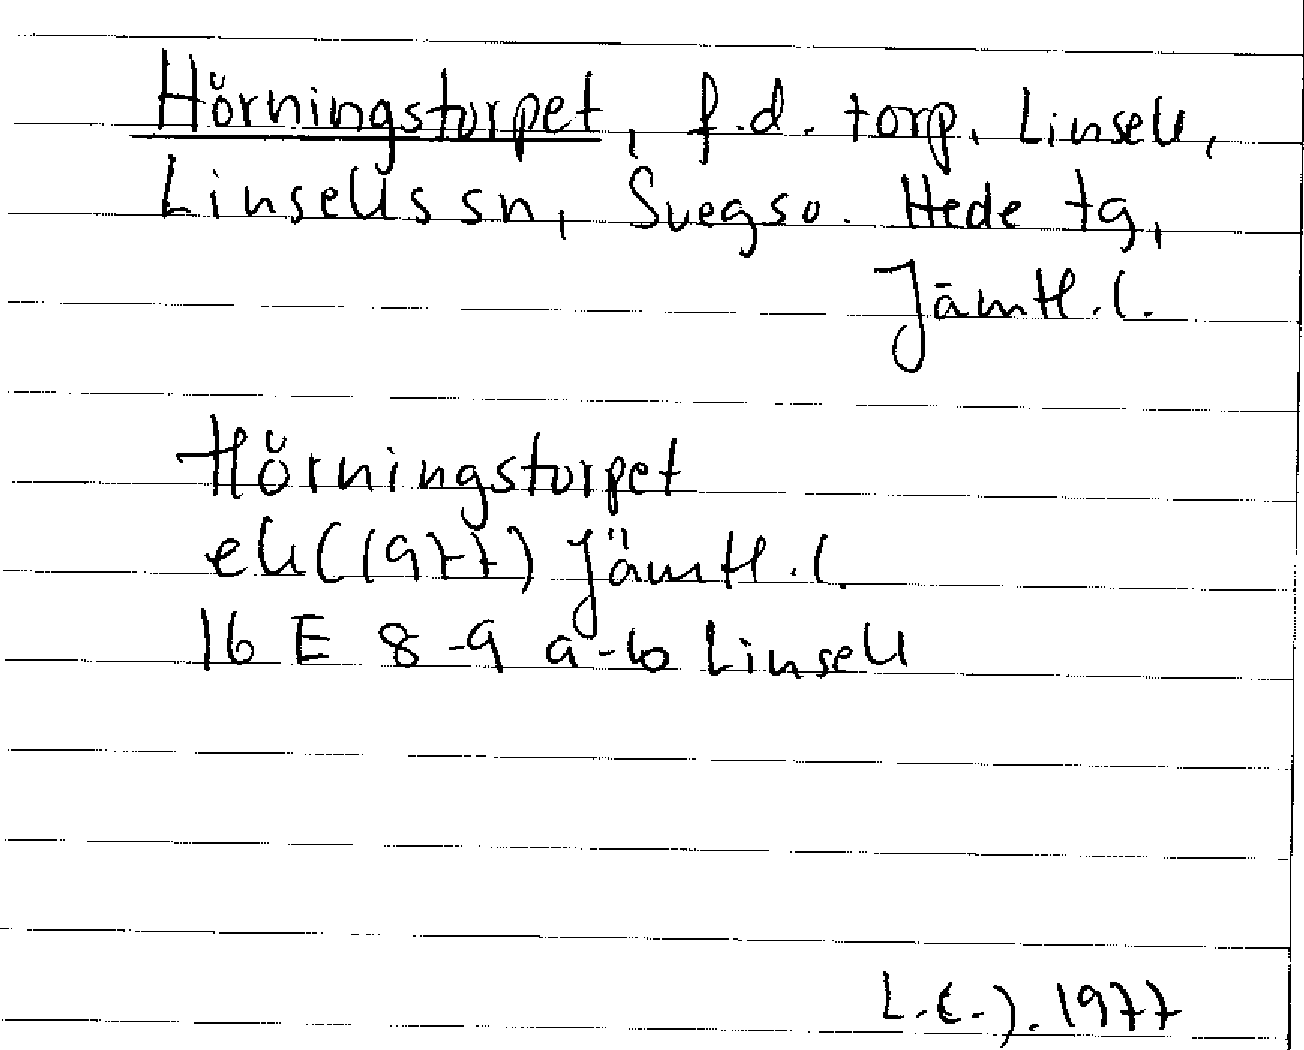 Hörningstorpet, f.d. torp. Linsell,
Linsells sn, Svegs o. Hede tg,
Jämtl. l.
Hörningstorpet
ek (1977) Jämtl. l.
16 E 8-9 a-b Linsell
L.E.J. 1977